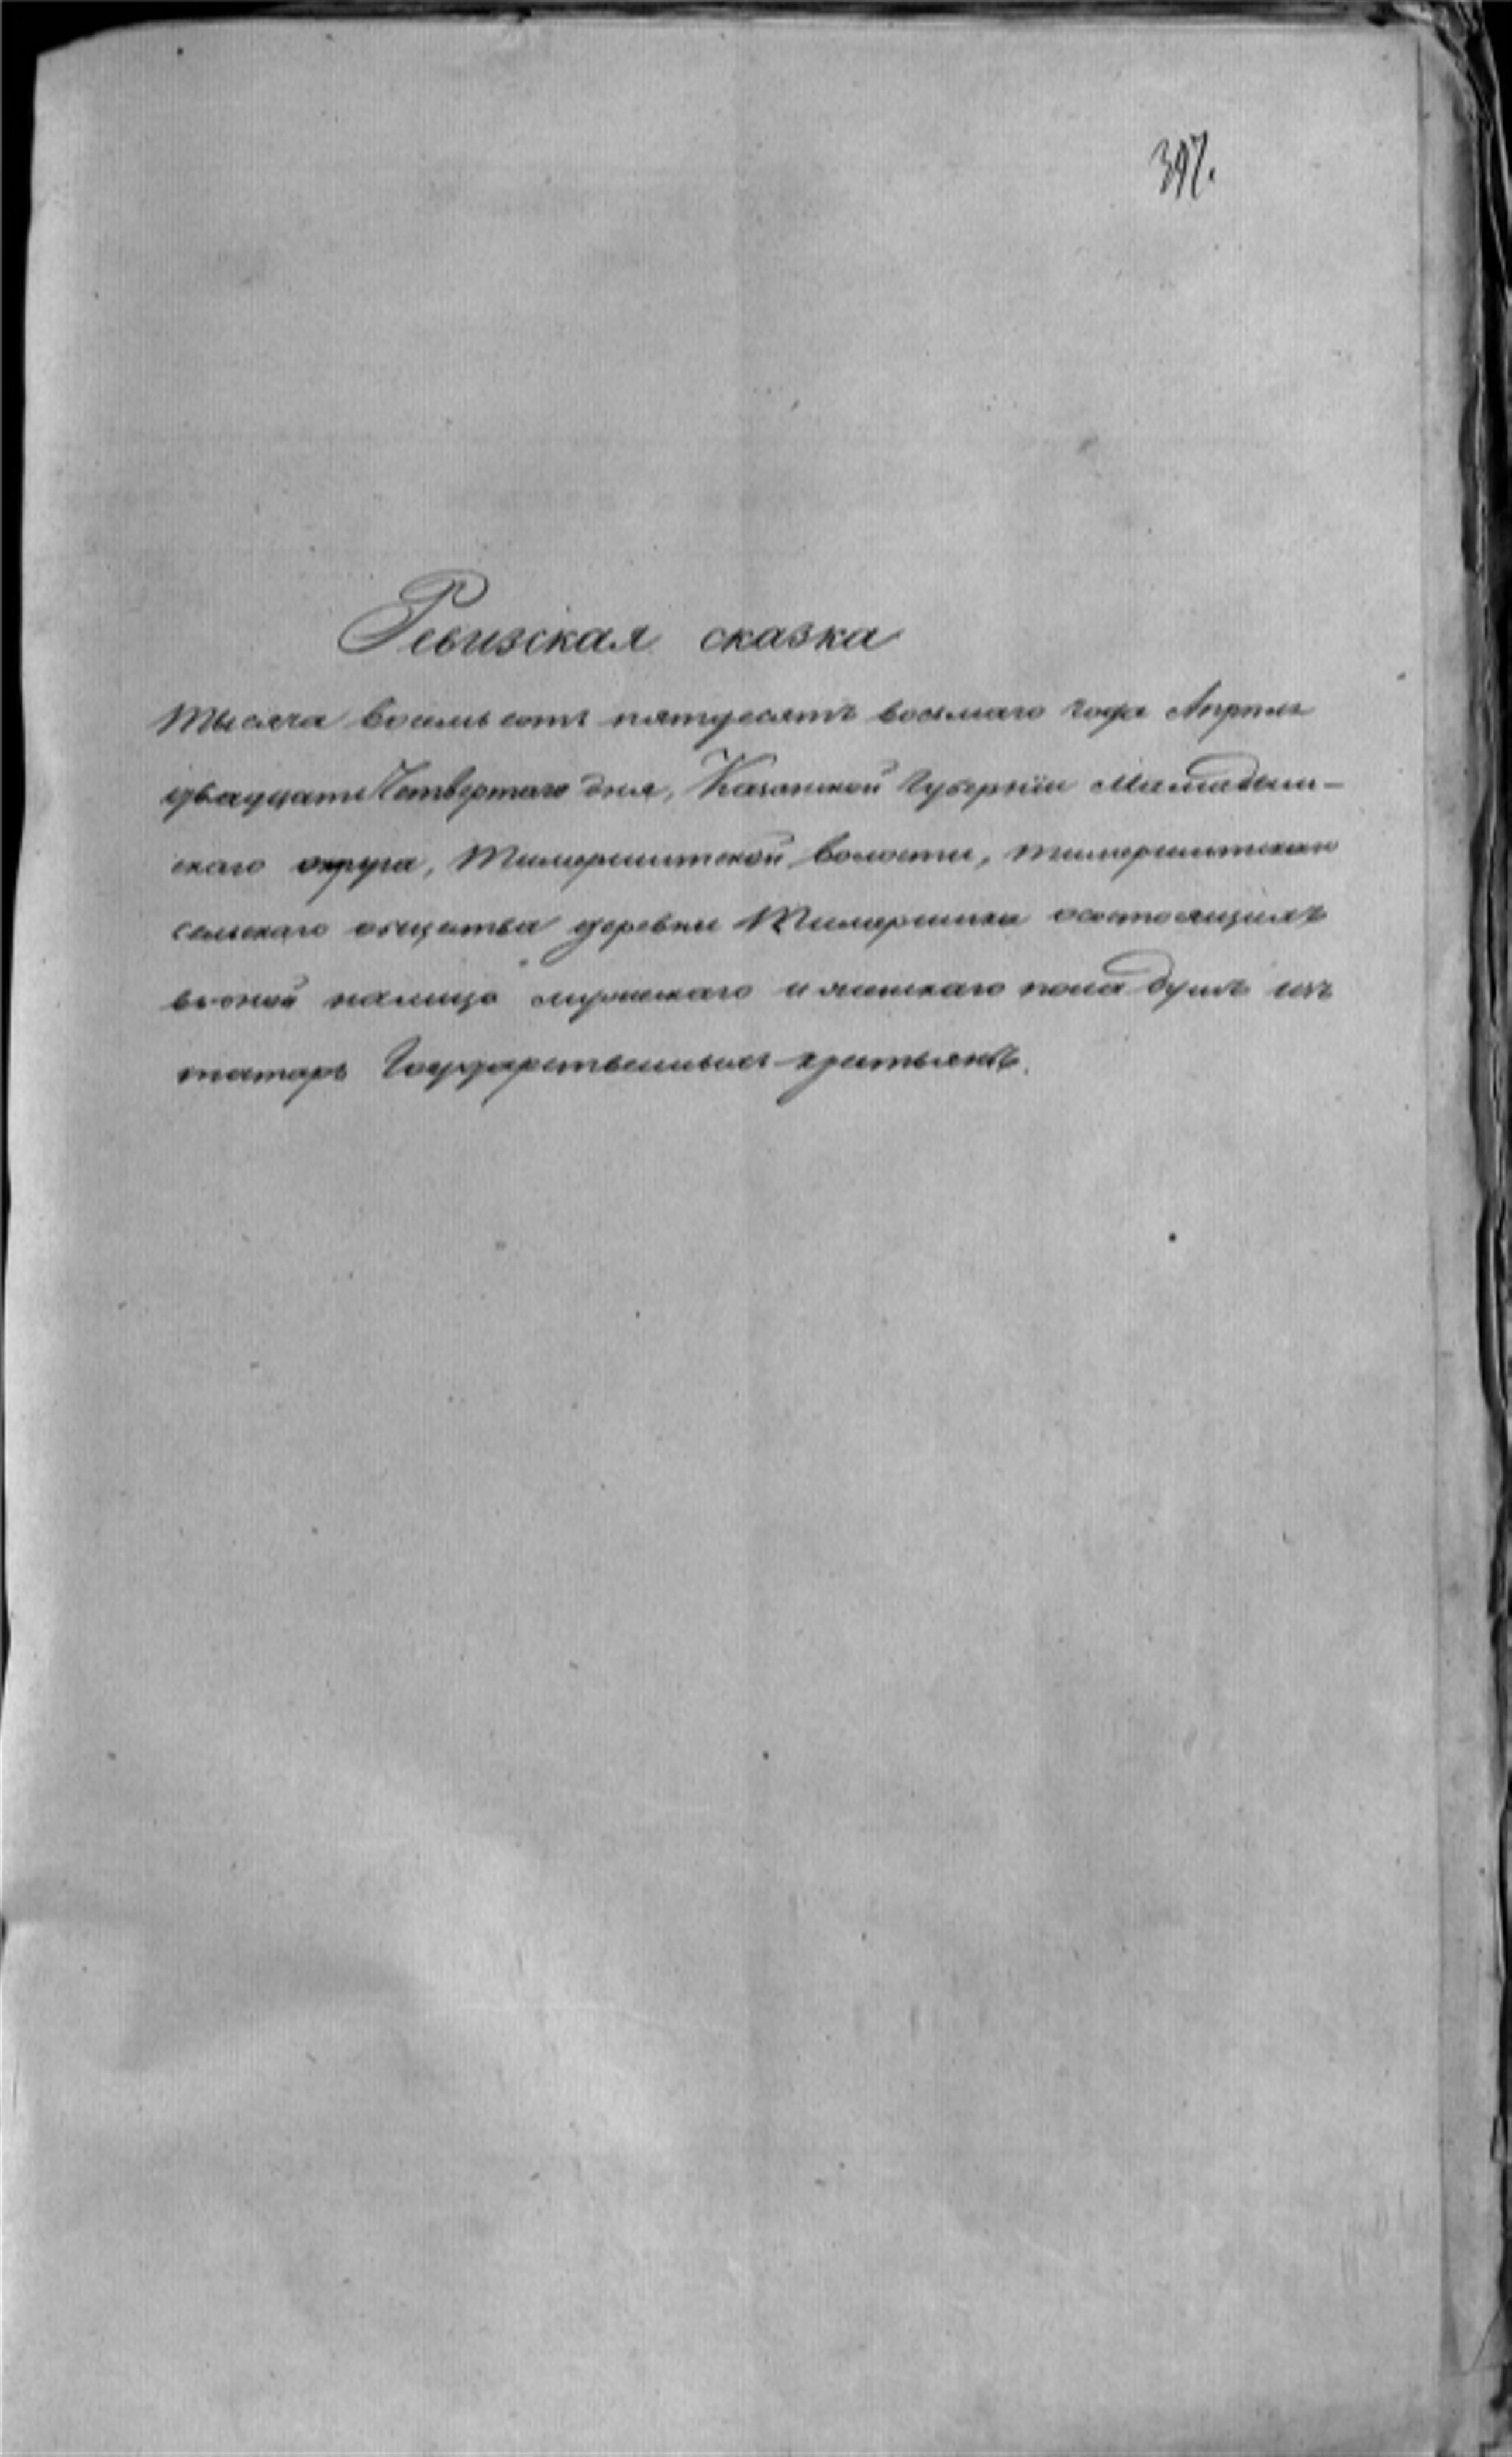 397.
Ревизская сказка
Тысяча восемь сотъ пятдесятъ восьмаго года Апреля
двадцати Четвертаго дня, Казанской Губернiи Мамадыш-
скаго округа, волости,
сельскаго общества деревни состоящихъ
въ оной налицо мужескаго и женскаго пола душъ изъ
татаръ Государственныхъ крестьянъ.